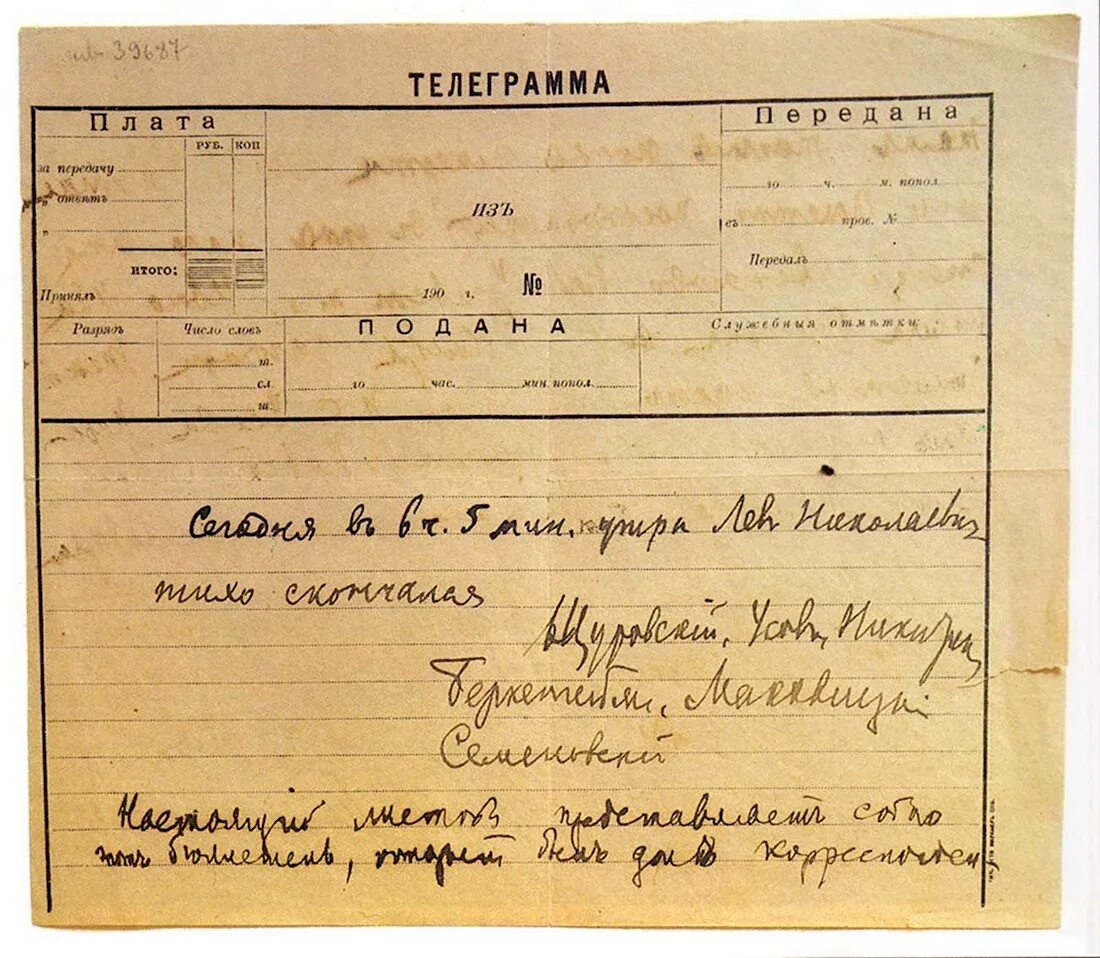 39687
ТЕЛЕГРАММА
Плата
РУБ. КОП
за передачу
„ ответъ
„
итого:
Принялъ
изъ
190 г. №
Передана
го ч. м. попол.
въ пров. №
Передалъ
Разрядъ
Число словъ
т.
сл.
ш.
ПОДАНА
го час. мин. попол.
Служебныя отмѣтки:
Сегодня въ 6 ч. 5 мин. утра Левъ Николаевич
тихо скончался
Щуровскій, Усовъ, Никитин
Беркенгейм, Маковицкій
Семеновскій
Настоящій листокъ представляетъ собою
бюллетень, который был данъ корреспонден